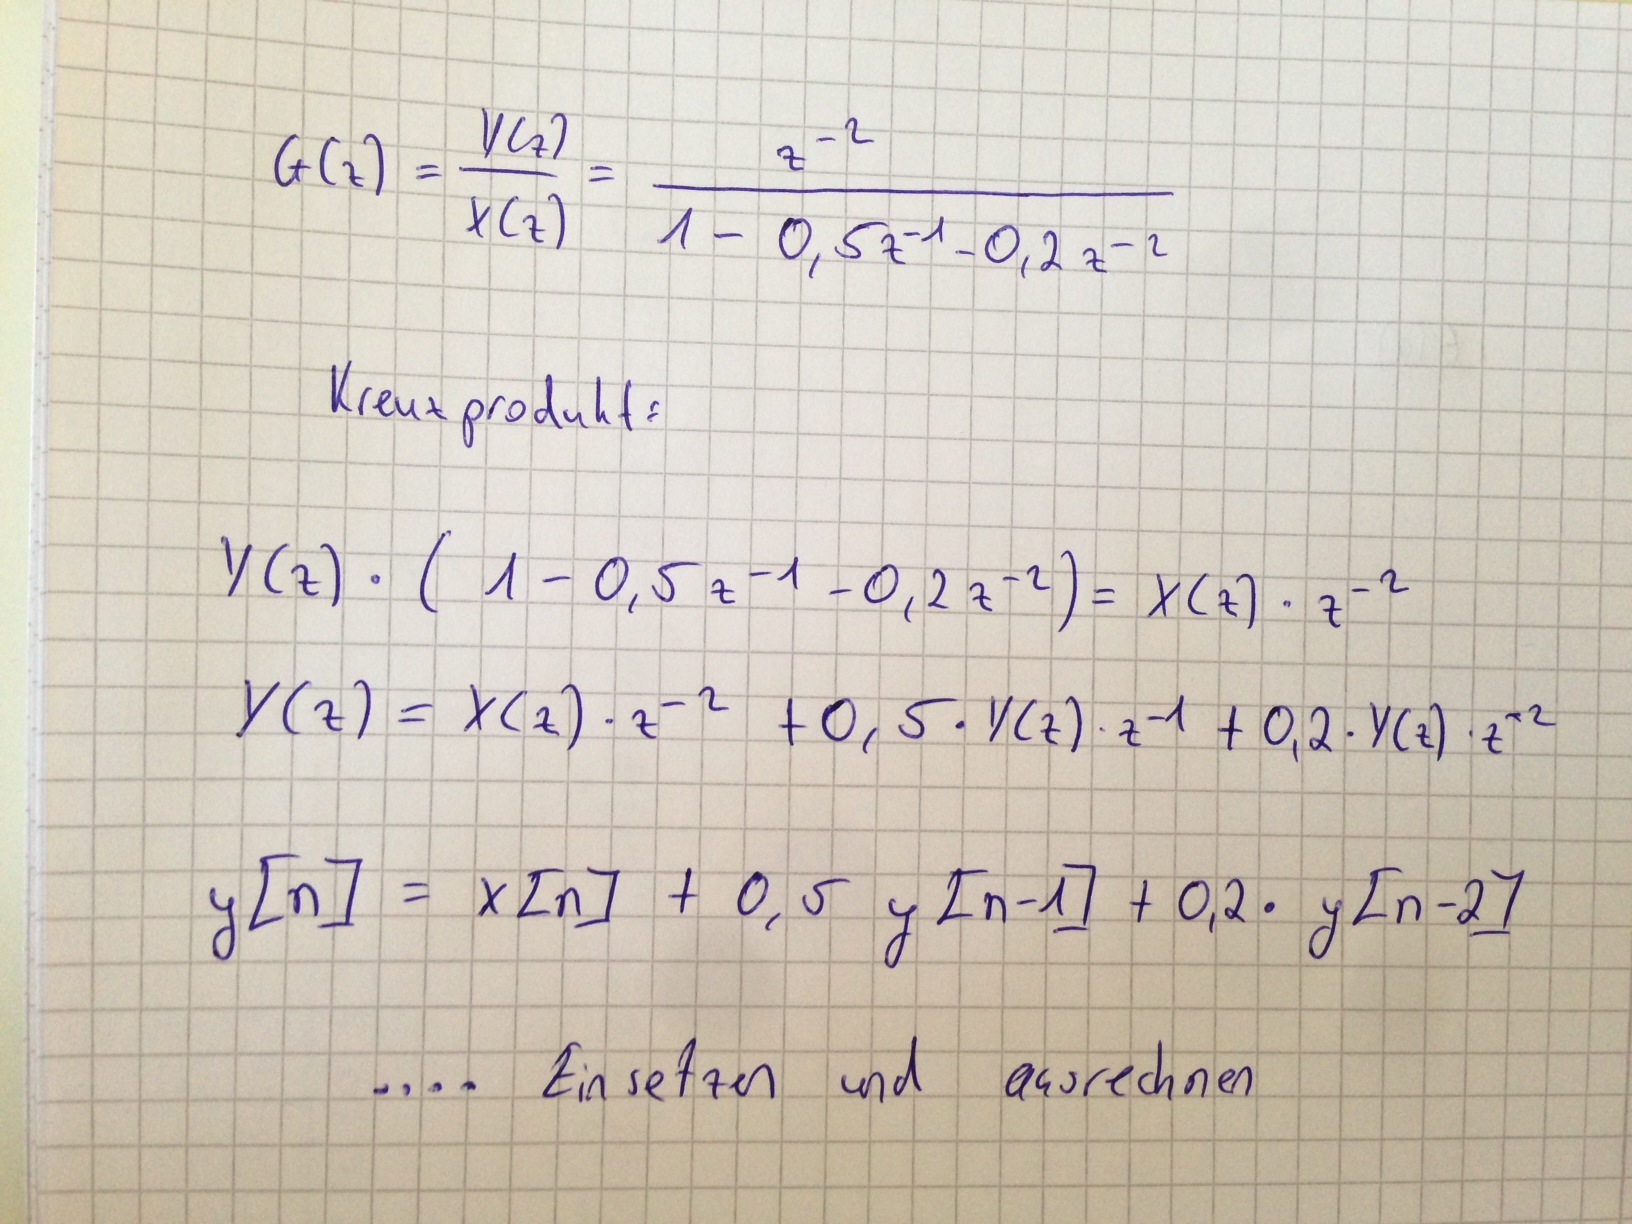 G(z) = Y(z)/X(z) = z⁻² / (1 - 0,5z⁻¹ - 0,2z⁻²)
Kreuzprodukt:
Y(z) · ( 1 - 0,5z⁻¹ - 0,2z⁻²) = X(z) · z⁻²
Y(z) = X(z) · z⁻² + 0,5 · Y(z) · z⁻¹ + 0,2 · Y(z) · z⁻²
y[n] = x[n] + 0,5 y[n-1] + 0,2 · y[n-2]
.... Einsetzen und ausrechnen